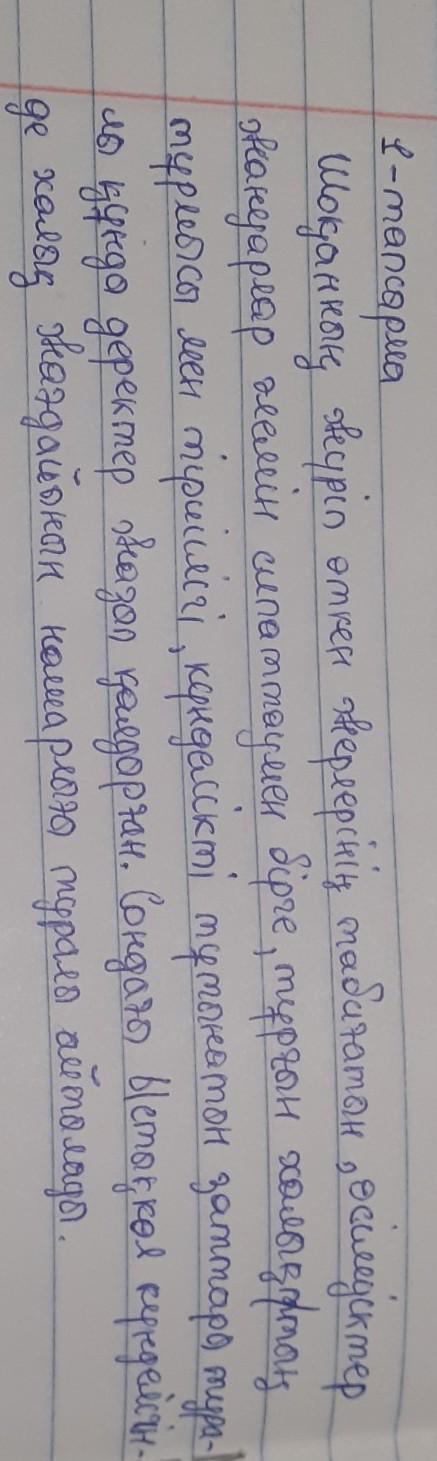 1-тапсарма
Шоқанның жүріп өткен жерлерінің табиғатын, өсімдіктер
жануарлар әлемін сипаттаумен бірге, тұрғын халықтың
тұрмысы мен тіршілігі, күнделікті тұтынатын заттары тура-
лы құнды деректер жазып қалдырған. Сондағы Ыстықкөл күнделігін-
де халық жағдайының нашарлығы туралы айтылады.